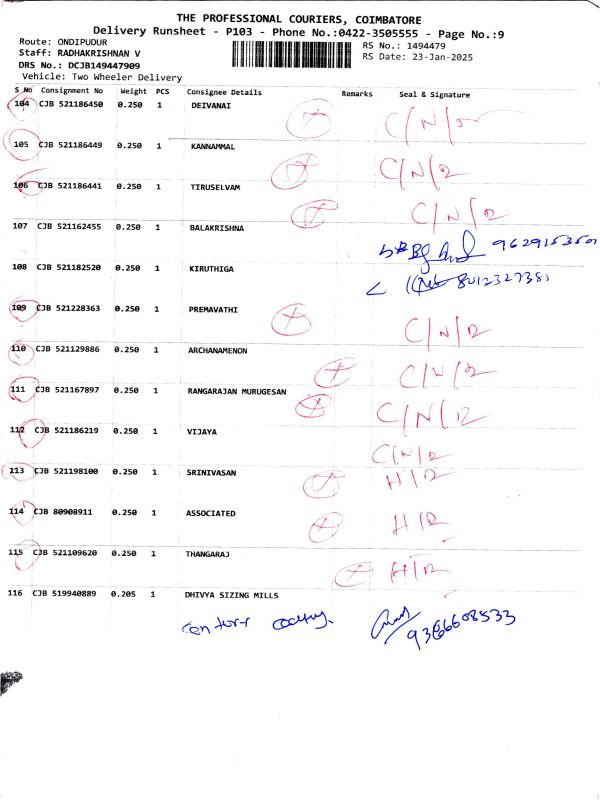 THE PROFESSIONAL COURIERS, COIMBATORE
Delivery Runsheet - P103 - Phone No.:0422-3505555 - Page No.:9
Route: ONDIPUDUR RS No.: 1494479
Staff: RADHAKRISHNAN V RS Date: 23-Jan-2025
DRS No.: DCJB149447909
Vehicle: Two Wheeler Delivery
S No Consignment No Weight PCS Consignee Details Remarks Seal & Signature
104 CJB 521186450 0.250 1 DEIVANAI
C/N/
105 CJB 521186449 0.250 1 KANNAMMAL
C/N/R
106 CJB 521186441 0.250 1 TIRUSELVAM
C/N/R
107 CJB 521162455 0.250 1 BALAKRISHNA
9629153501
108 CJB 521182520 0.250 1 KIRUTHIGA
8012327381
109 CJB 521228363 0.250 1 PREMAVATHI
C/N/R
110 CJB 521129886 0.250 1 ARCHANAMENON
C/N/R
111 CJB 521167897 0.250 1 RANGARAJAN MURUGESAN
C/N/R
112 CJB 521186219 0.250 1 VIJAYA
C/N/R
113 CJB 521198100 0.250 1 SRINIVASAN
H/R
114 CJB 80908911 0.250 1 ASSOCIATED
H/R
115 CJB 521109620 0.250 1 THANGARAJ
H/R
116 CJB 519940889 0.205 1 DHIVYA SIZING MILLS
9366608533